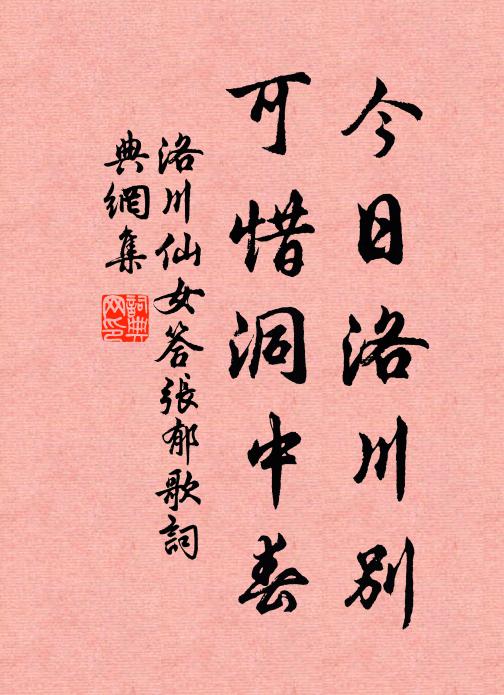 今日洛川別
可惜洞中春
洛川仙女答張郁歌詞
典網集
詞典
网印